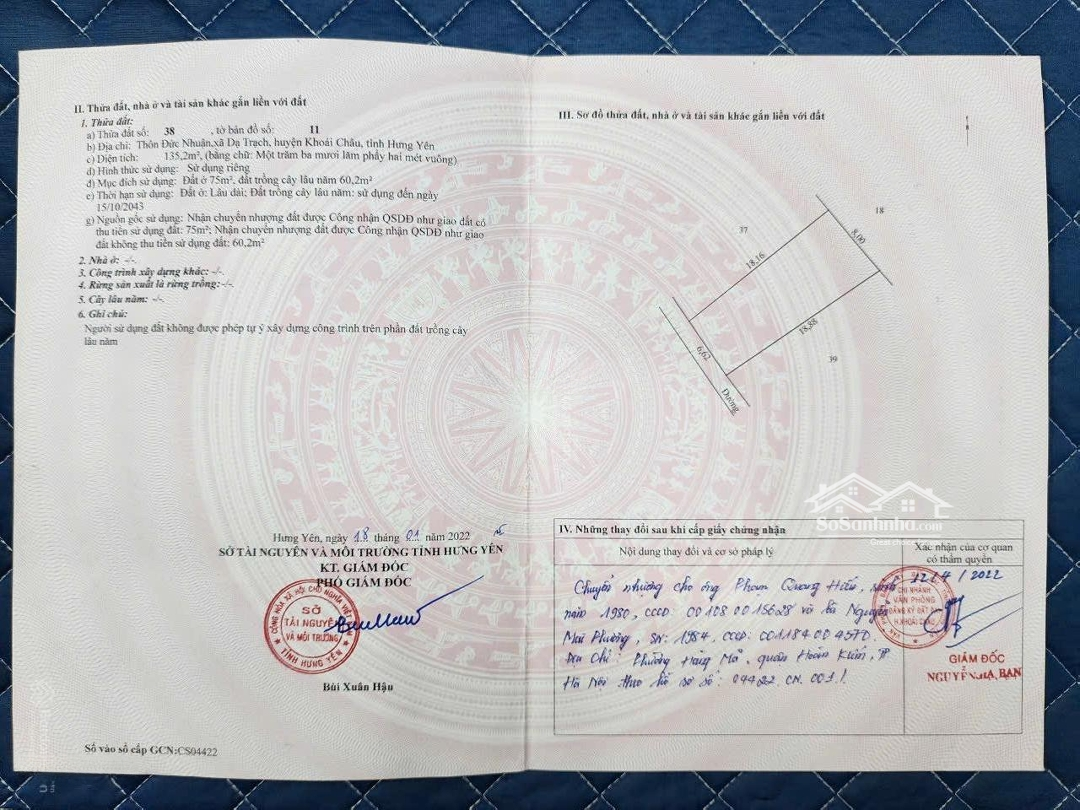 II. Thửa đất, nhà ở và tài sản khác gắn liền với đất
1. Thửa đất:
a) Thửa đất số: 38 , tờ bản đồ số: 11
b) Địa chỉ: Thôn Đức Nhuận,xã Dạ Trạch, huyện Khoái Châu, tỉnh Hưng Yên
c) Diện tích: 135,2m², (bằng chữ: Một trăm ba mươi lăm phẩy hai mét vuông)
d) Hình thức sử dụng: Sử dụng riêng
đ) Mục đích sử dụng: Đất ở 75m², đất trồng cây lâu năm 60,2m²
e) Thời hạn sử dụng: Đất ở: Lâu dài; Đất trồng cây lâu năm: sử dụng đến ngày
15/10/2043
g) Nguồn gốc sử dụng: Nhận chuyển nhượng đất được Công nhận QSDĐ như giao đất có
thu tiền sử dụng đất: 75m²; Nhận chuyển nhượng đất được Công nhận QSDĐ như giao
đất không thu tiền sử dụng đất: 60,2m²
2. Nhà ở: -/-.
3. Công trình xây dựng khác: -/-.
4. Rừng sản xuất là rừng trồng:-/-.
5. Cây lâu năm: -/-.
6. Ghi chú:
Người sử dụng đất không được phép tự ý xây dựng công trình trên phần đất trồng cây
lâu năm
Hưng Yên, ngày 18 tháng 01 năm 2022
SỞ TÀI NGUYÊN VÀ MÔI TRƯỜNG TỈNH HƯNG YÊN
KT. GIÁM ĐỐC
PHÓ GIÁM ĐỐC
CỘNG HÒA XÃ HỘI CHỦ NGHĨA VIỆT NAM
SỞ
TÀI NGUYÊN
VÀ MÔI TRƯỜNG
TỈNH HƯNG YÊN
Bùi Xuân Hậu
Số vào sổ cấp GCN:CS04422
III. Sơ đồ thửa đất, nhà ở và tài sản khác gắn liền với đất
18
37
8,00
18,16
18,88
39
6,62
Đường
SoSanhnha.com
IV. Những thay đổi sau khi cấp giấy chứng nhận
Nội dung thay đổi và cơ sở pháp lý
Xác nhận của cơ quan
có thẩm quyền
Chuyển nhượng cho ông Phạm Quang Hiếu, sinh
năm 1980, CCCD 001080015628 và bà Nguyễn
Mai Phương, SN: 1984, CCCD:
Địa chỉ: Phường Hàng Mã, quận Hoàn Kiếm, TP
Hà Nội theo hồ sơ số: 04422.CN.001./.
12/4/2022
CHI NHÁNH
VĂN PHÒNG
ĐĂNG KÝ ĐẤT ĐAI
H.KHOÁI CHÂU
GIÁM ĐỐC
NGUYỄN BẠN